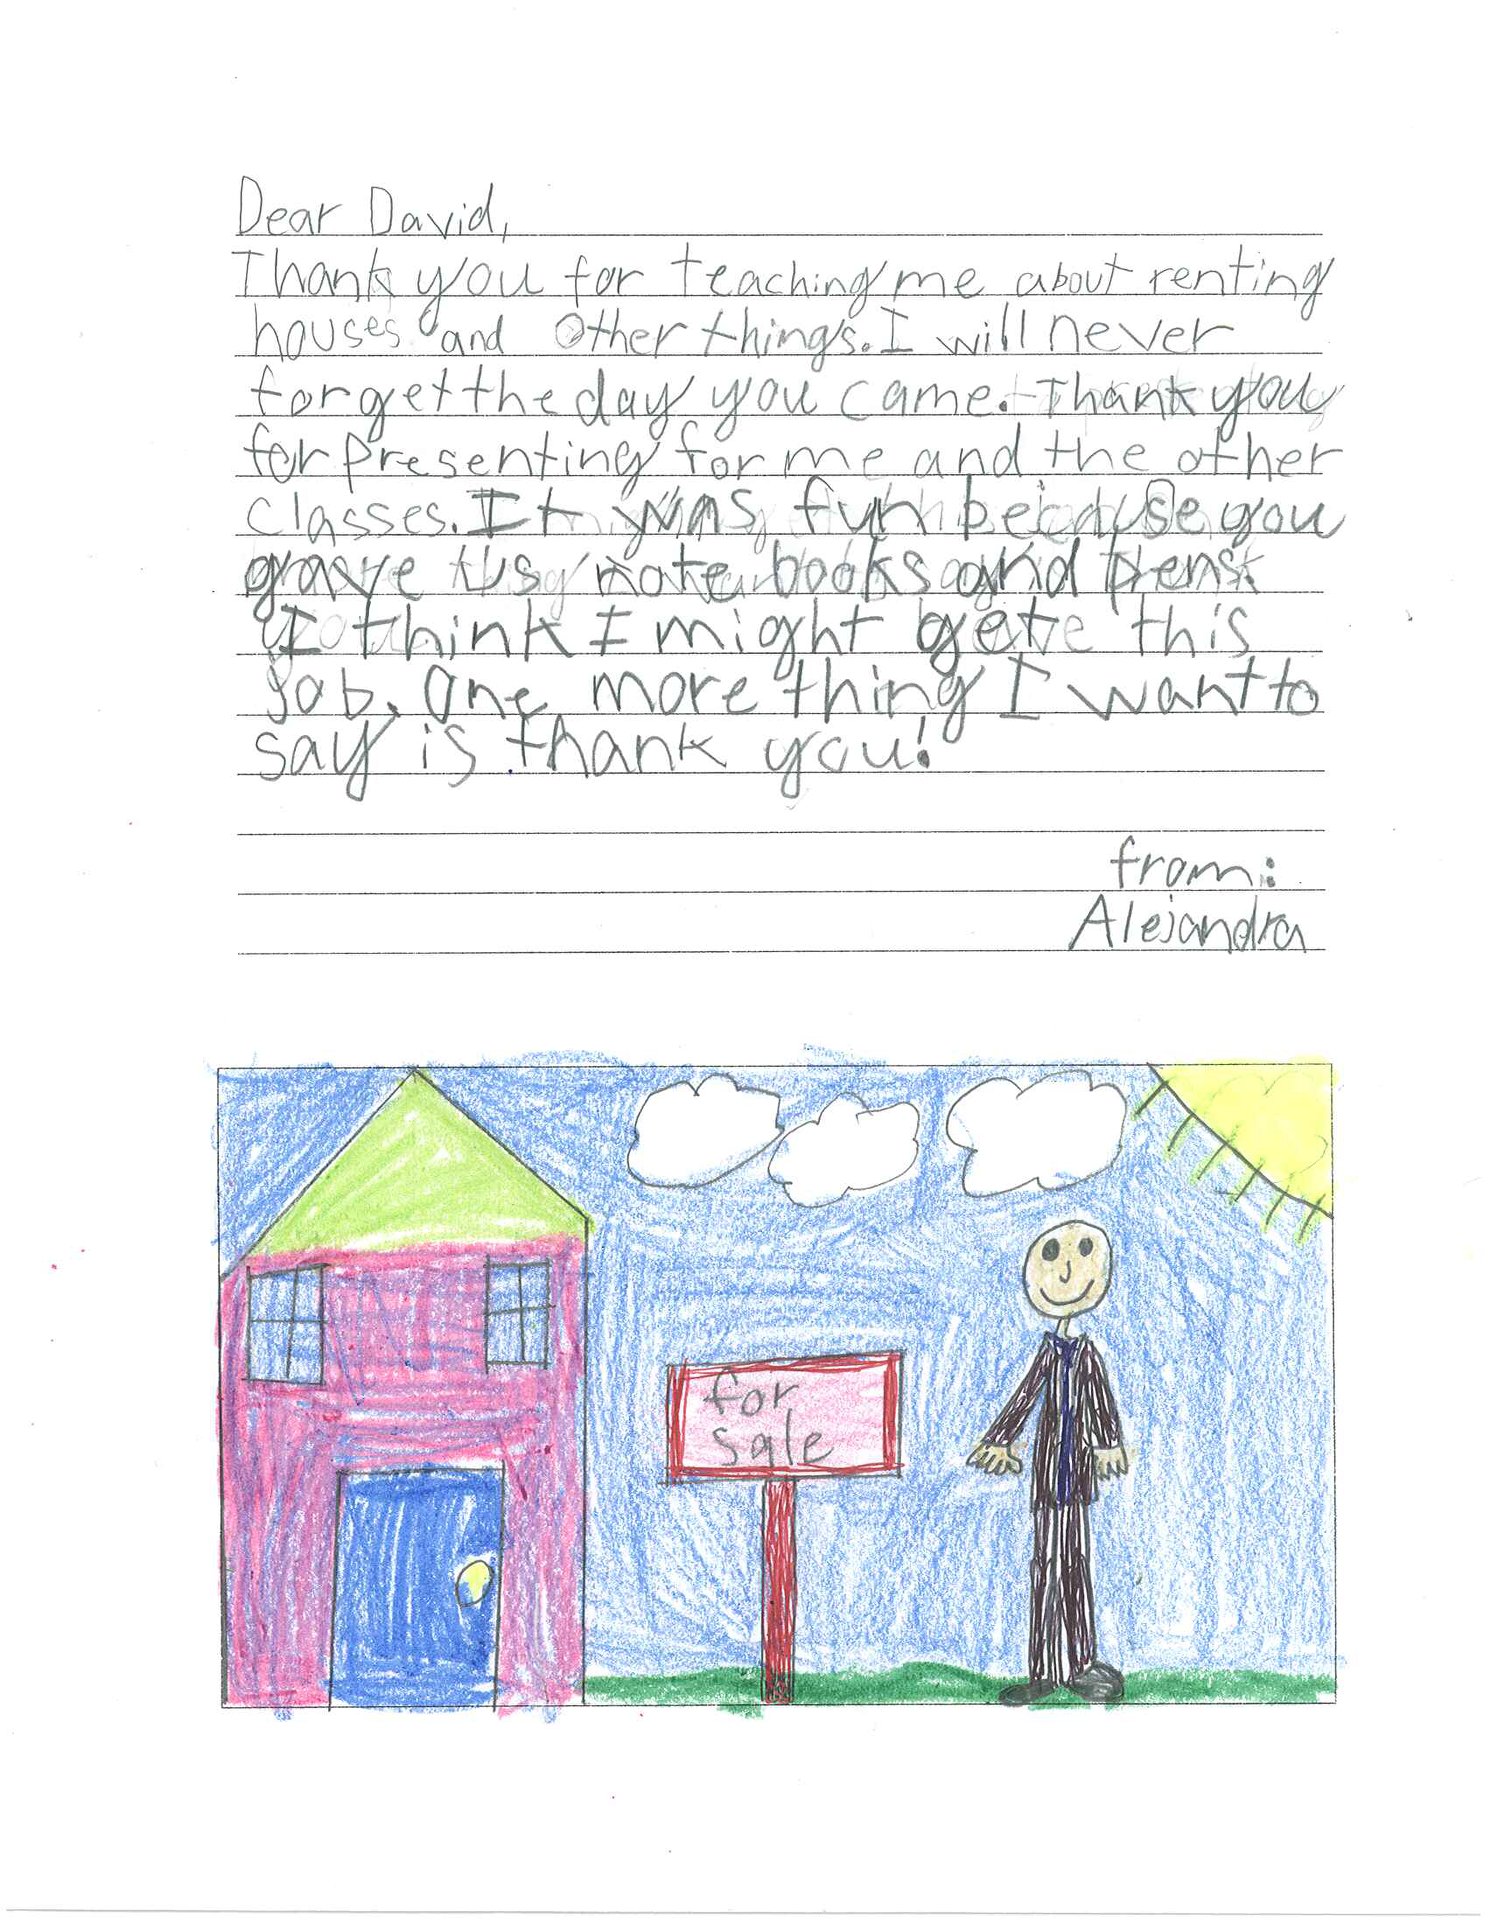 Dear David,
Thank you for teaching me about renting
houses and other things. I will never
forget the day you came. Thank you
for presenting for me and the other
classes. It was fun because you
gave us note books and pens.
I think I might get this
job. One more thing I want to
say is thank you!
from:
Alejandra
for
sale